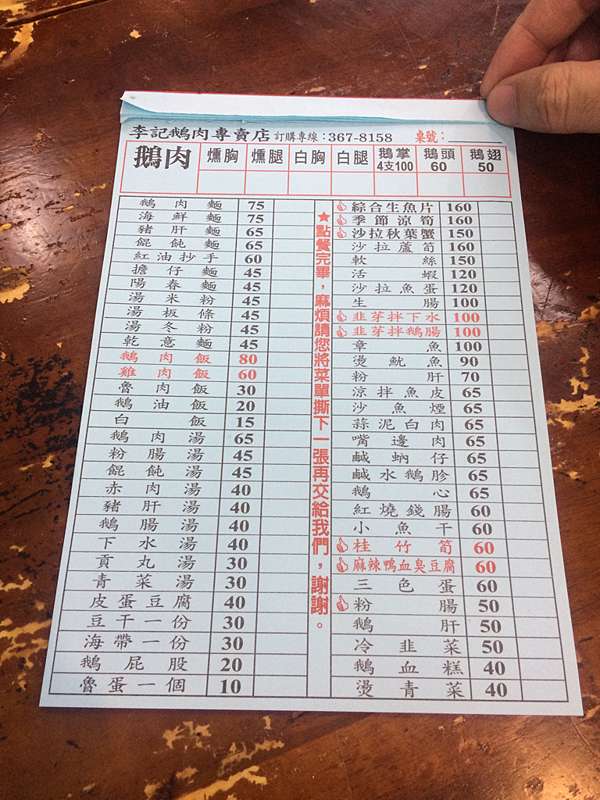 李記鵝肉專賣店 訂購專線：367-8158 桌號：
鵝肉 燻胸 燻腿 白胸 白腿 鵝掌 4支100 鵝頭 60 鵝翅 50
鵝肉麵 75
海鮮麵 75
豬肝麵 65
餛飩麵 65
紅油抄手 60
擔仔麵 45
陽春麵 45
湯米粉 45
湯板條 45
湯冬粉 45
乾意麵 45
鵝肉飯 80
雞肉飯 60
魯肉飯 30
鵝油飯 20
白飯 15
鵝肉湯 65
粉腸湯 45
餛飩湯 45
赤肉湯 40
豬肝湯 40
鵝腸湯 40
下水湯 40
貢丸湯 30
青菜湯 30
皮蛋豆腐 40
豆干一份 30
海帶一份 30
鵝屁股 20
魯蛋一個 10
★點餐完畢，麻煩請您將菜單撕下一張再交給我們，謝謝。
綜合生魚片 160
季節涼筍 160
沙拉秋葉蟹 150
沙拉蘆筍 160
軟絲 150
活蝦 120
沙拉魚蛋 120
生腸 100
韭芽拌下水 100
韭芽拌鵝腸 100
章魚 100
燙魷魚 90
粉肝 70
涼拌魚皮 65
沙魚煙 65
蒜泥白肉 65
嘴邊肉 65
鹹蚋仔 65
鹹水鵝胗 65
鵝心 65
紅燒錢腸 60
小魚干 60
桂竹筍 60
麻辣鴨血臭豆腐 60
三色蛋 60
粉腸 50
鵝肝 50
冷韭菜 50
鵝血糕 40
燙青菜 40